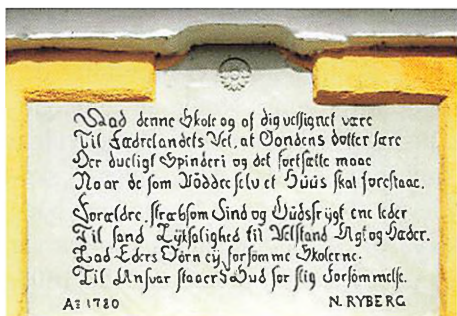 Lad denne Skole og af dig velsignet være
Til Fædrelandets Vel, at Bondens dotter lære
Her dueligt Spinderi og det fortsætte maae
Naar de som Möddre selv et Hüüs skal forestaae.
Forældre, stræbsom Sind og Güdsfrÿgt ene leder
Til sand Lÿksalighed til Velstand Agt og Hæder.
Lad Eders Börn eÿ forsömme Skolerne.
Til Ansvar staaer I Gud for slig Forsömmelse.
Aº 1780 N. RYBERG